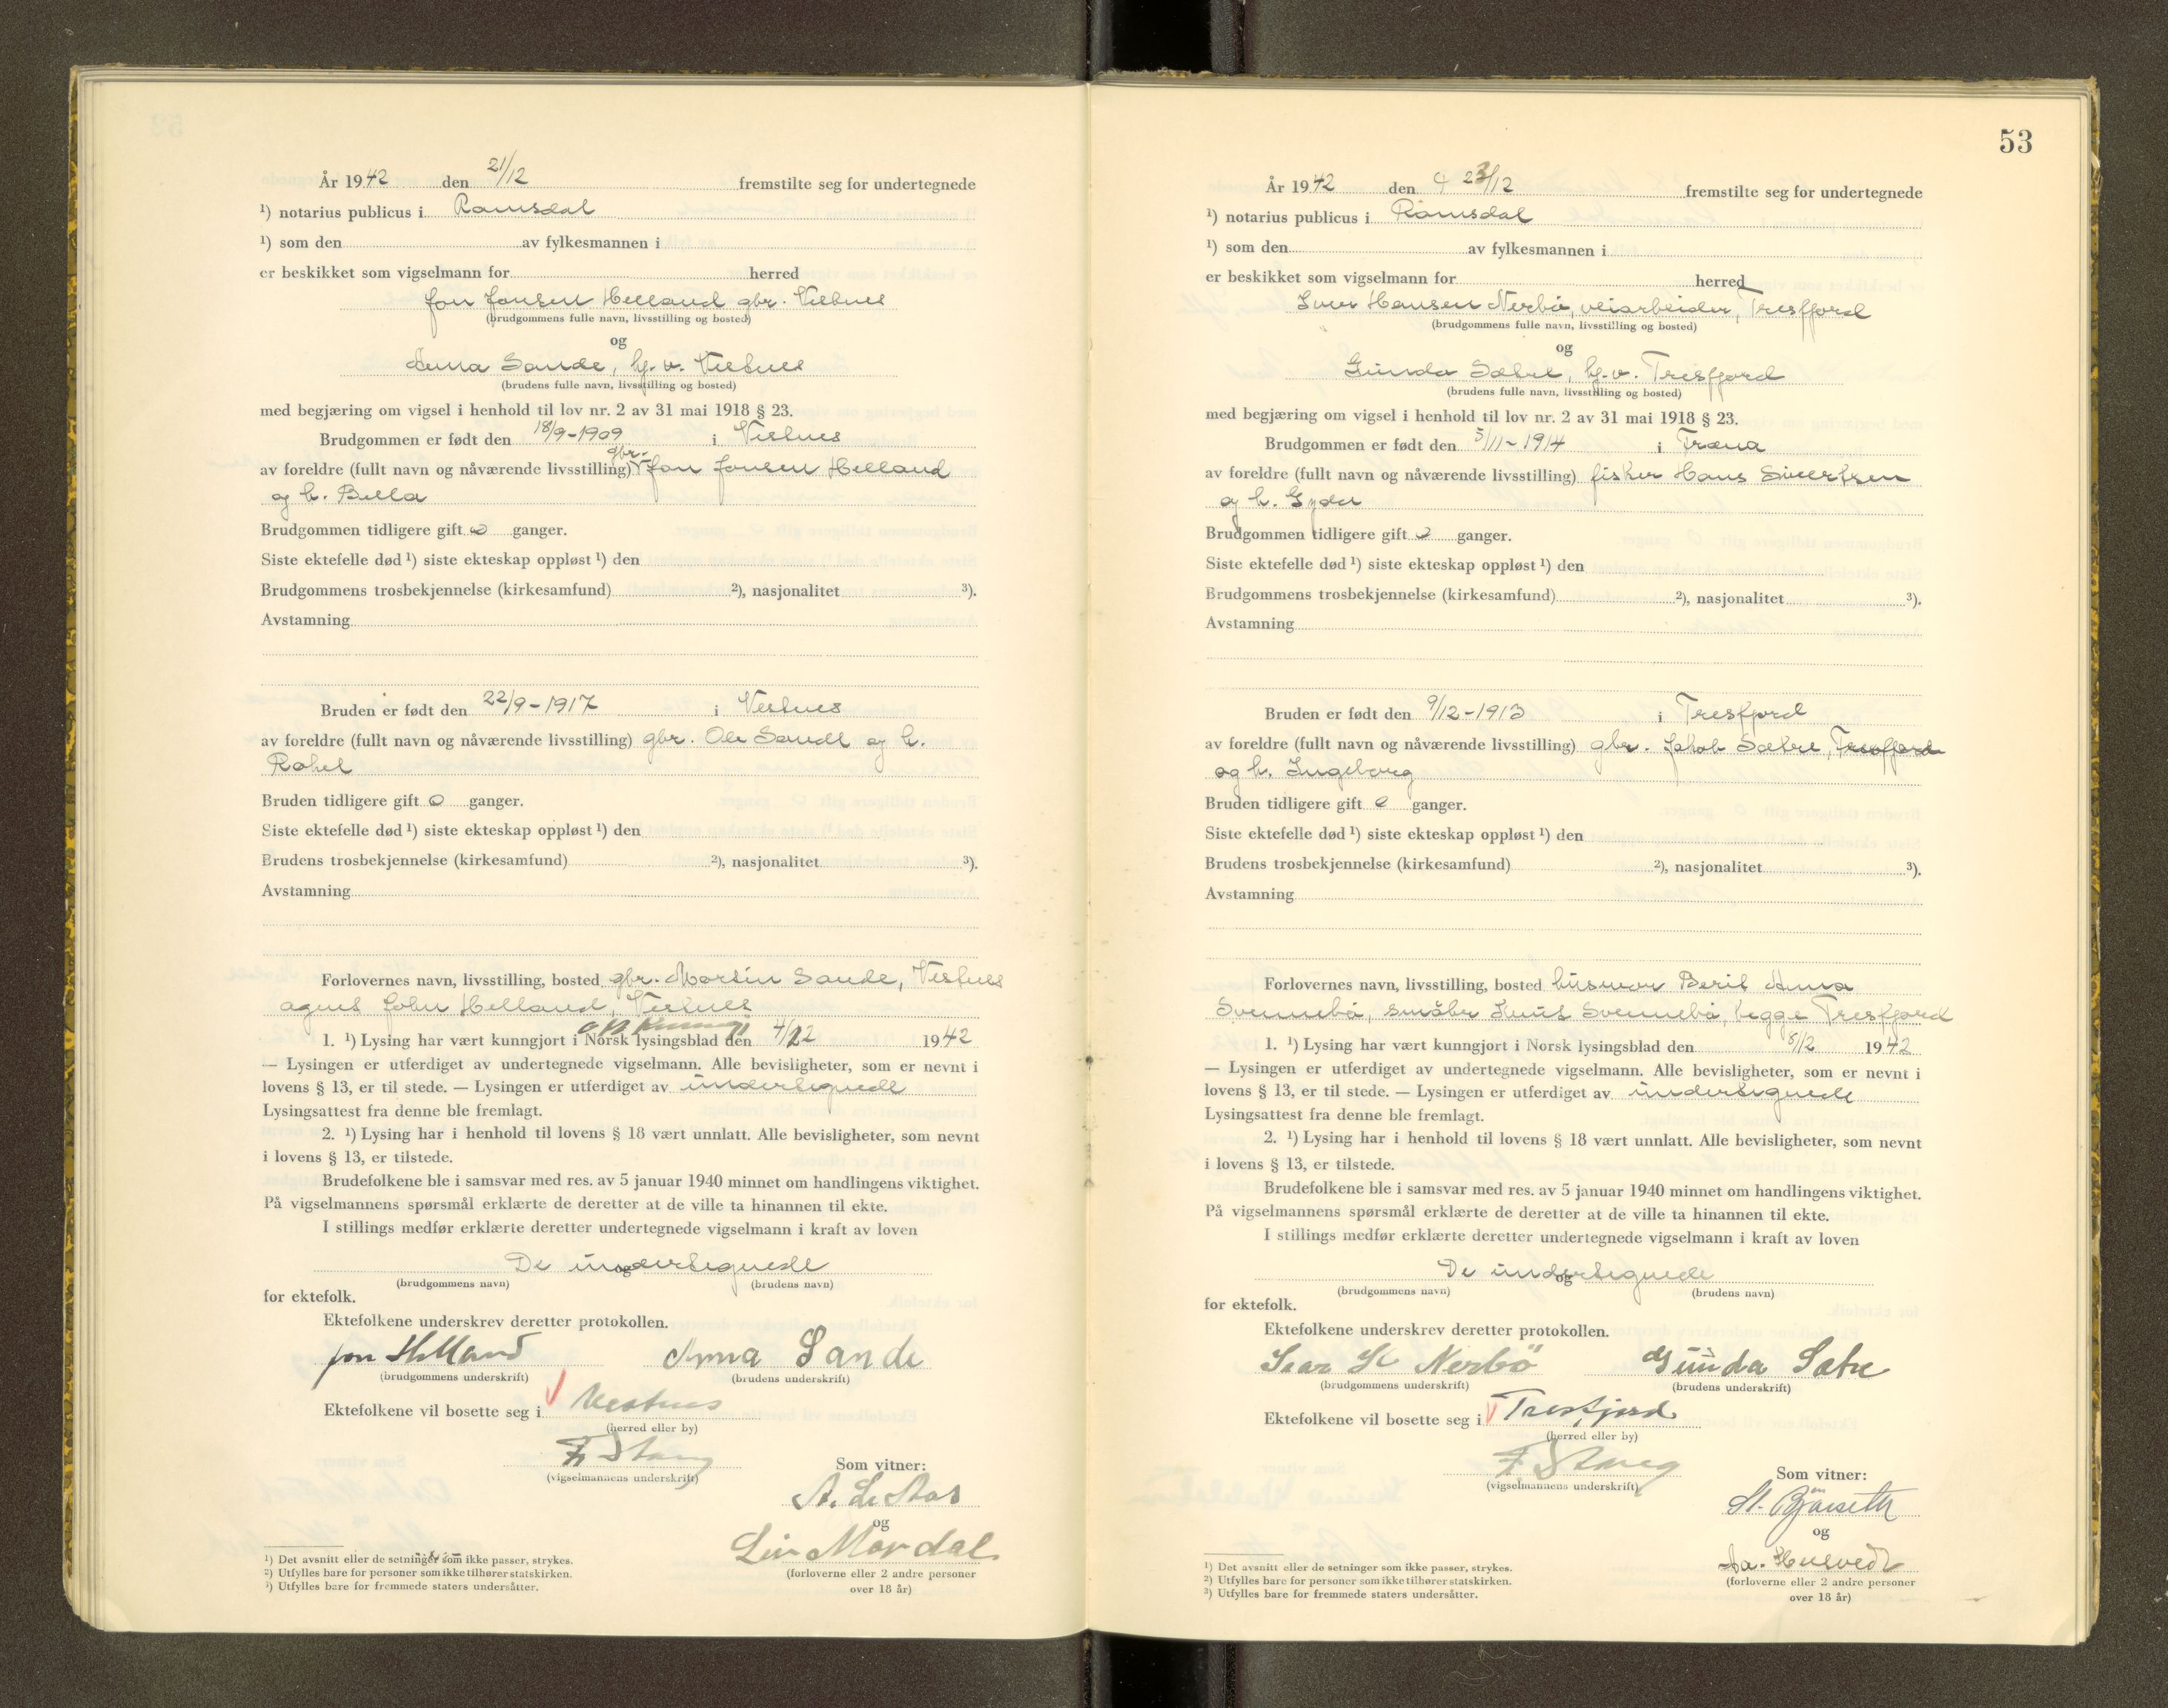 År 1942 den 21/12 fremstilte seg for undertegnede
¹) notarius publicus i Romsdal
¹) som den av fylkesmannen i
er beskikket som vigselmann for herred
Jon Jonsen Helland gbr. Vestnes
(brudgommens fulle navn, livsstilling og bosted)
og
Anna Sande, hj.v. Vestnes
(brudens fulle navn, livsstilling og bosted)
med begjæring om vigsel i henhold til lov nr. 2 av 31 mai 1918 § 23.
Brudgommen er født den 18/9-1909 i Vestnes
av foreldre (fullt navn og nåværende livsstilling) gbr. Jon Jonsen Helland
og h. Bella
Brudgommen tidligere gift 0 ganger.
Siste ektefelle død ¹) siste ekteskap oppløst ¹) den
Brudgommens trosbekjennelse (kirkesamfund) ²), nasjonalitet ³).
Avstamning
Bruden er født den 22/9-1917 i Vestnes
av foreldre (fullt navn og nåværende livsstilling) gbr. Ole Sande og h.
Rakel
Bruden tidligere gift 0 ganger.
Siste ektefelle død ¹) siste ekteskap oppløst ¹) den
Brudens trosbekjennelse (kirkesamfund) ²), nasjonalitet ³).
Avstamning
Forlovernes navn, livsstilling, bosted gbr. Martin Sande, Vestnes
agent John Helland, Vestnes
1. ¹) Lysing har vært kunngjort i Norsk lysingsblad den 4/12 1942
— Lysingen er utferdiget av undertegnede vigselmann. Alle bevisligheter, som er nevnt i
lovens § 13, er til stede. — Lysingen er utferdiget av undertegnede
Lysingsattest fra denne ble fremlagt.
2. ¹) Lysing har i henhold til lovens § 18 vært unnlatt. Alle bevisligheter, som nevnt
i lovens § 13, er tilstede.
Brudefolkene ble i samsvar med res. av 5 januar 1940 minnet om handlingens viktighet.
På vigselmannens spørsmål erklærte de deretter at de ville ta hinannen til ekte.
I stillings medfør erklærte deretter undertegnede vigselmann i kraft av loven
De undertegnede
og
(brudgommens navn) (brudens navn)
for ektefolk.
Ektefolkene underskrev deretter protokollen.
Jon Helland Anna Sande
(brudgommens underskrift) (brudens underskrift)
Ektefolkene vil bosette seg i Vestnes
(herred eller by)
F Stang
(vigselmannens underskrift)
Som vitner:
og
Liv Mordal
(forloverne eller 2 andre personer
over 18 år)
¹) Det avsnitt eller de setninger som ikke passer, strykes.
²) Utfylles bare for personer som ikke tilhører statskirken.
³) Utfylles bare for fremmede staters undersåtter.
53
År 1942 den 23/12 fremstilte seg for undertegnede
¹) notarius publicus i Romsdal
¹) som den av fylkesmannen i
er beskikket som vigselmann for herred
Ivar Hansen Nerbö, veiarbeider, Tresfjord
(brudgommens fulle navn, livsstilling og bosted)
og
Gunda Sætre, hj.v. Tresfjord
(brudens fulle navn, livsstilling og bosted)
med begjæring om vigsel i henhold til lov nr. 2 av 31 mai 1918 § 23.
Brudgommen er født den 5/11-1914 i Træna
av foreldre (fullt navn og nåværende livsstilling) fisker Hans Sivertsen
og h. Gyda
Brudgommen tidligere gift 0 ganger.
Siste ektefelle død ¹) siste ekteskap oppløst ¹) den
Brudgommens trosbekjennelse (kirkesamfund) ²), nasjonalitet ³).
Avstamning
Bruden er født den 9/12-1913 i Tresfjord
av foreldre (fullt navn og nåværende livsstilling) gbr. Jakob Sætre, Tresfjord
og h. Ingeborg
Bruden tidligere gift 0 ganger.
Siste ektefelle død ¹) siste ekteskap oppløst ¹) den
Brudens trosbekjennelse (kirkesamfund) ²), nasjonalitet ³).
Avstamning
Forlovernes navn, livsstilling, bosted husmor Berit Anna
Svennebö, småbr Knut Svennebö, begge Tresfjord
1. ¹) Lysing har vært kunngjort i Norsk lysingsblad den 8/12 1942
— Lysingen er utferdiget av undertegnede vigselmann. Alle bevisligheter, som er nevnt i
lovens § 13, er til stede. — Lysingen er utferdiget av undertegnede
Lysingsattest fra denne ble fremlagt.
2. ¹) Lysing har i henhold til lovens § 18 vært unnlatt. Alle bevisligheter, som nevnt
i lovens § 13, er tilstede.
Brudefolkene ble i samsvar med res. av 5 januar 1940 minnet om handlingens viktighet.
På vigselmannens spørsmål erklærte de deretter at de ville ta hinannen til ekte.
I stillings medfør erklærte deretter undertegnede vigselmann i kraft av loven
De undertegnede
og
(brudgommens navn) (brudens navn)
for ektefolk.
Ektefolkene underskrev deretter protokollen.
Ivar H Nerbö Gunda Sætre
(brudgommens underskrift) (brudens underskrift)
Ektefolkene vil bosette seg i Tresfjord
(herred eller by)
F Stang
(vigselmannens underskrift)
Som vitner:
og
(forloverne eller 2 andre personer
over 18 år)
¹) Det avsnitt eller de setninger som ikke passer, strykes.
²) Utfylles bare for personer som ikke tilhører statskirken.
³) Utfylles bare for fremmede staters undersåtter.